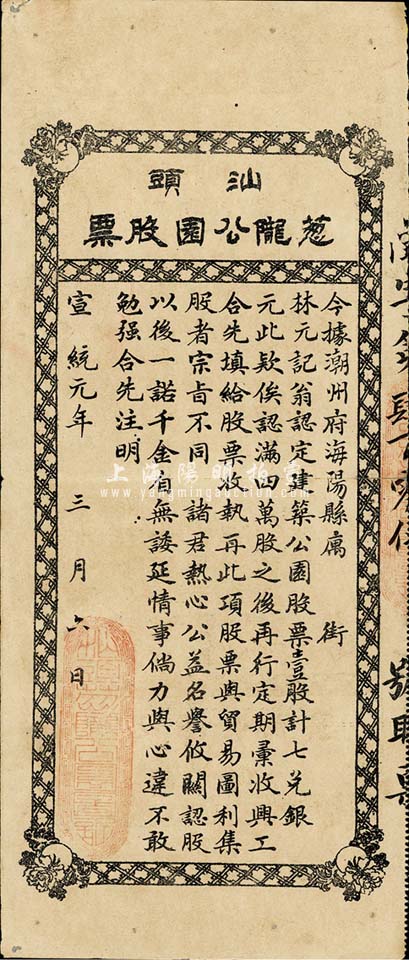 汕頭
葱隴公園股票
今據潮州府海陽縣屬　街
林元記翁認定建築公園股票壹股計七兌銀
元此欵俟認滿四萬股之後再行定期彙收興工
合先填給股票收執再此項股票與貿易圖利集
股者宗旨不同　諸君熱心公益名譽攸關認股
以後一諾千金自無諉延情事倘力與心違不敢
勉强合先注明
宣統元年　三　月　六　日
上海陽明拍賣
www.yangmingauction.com